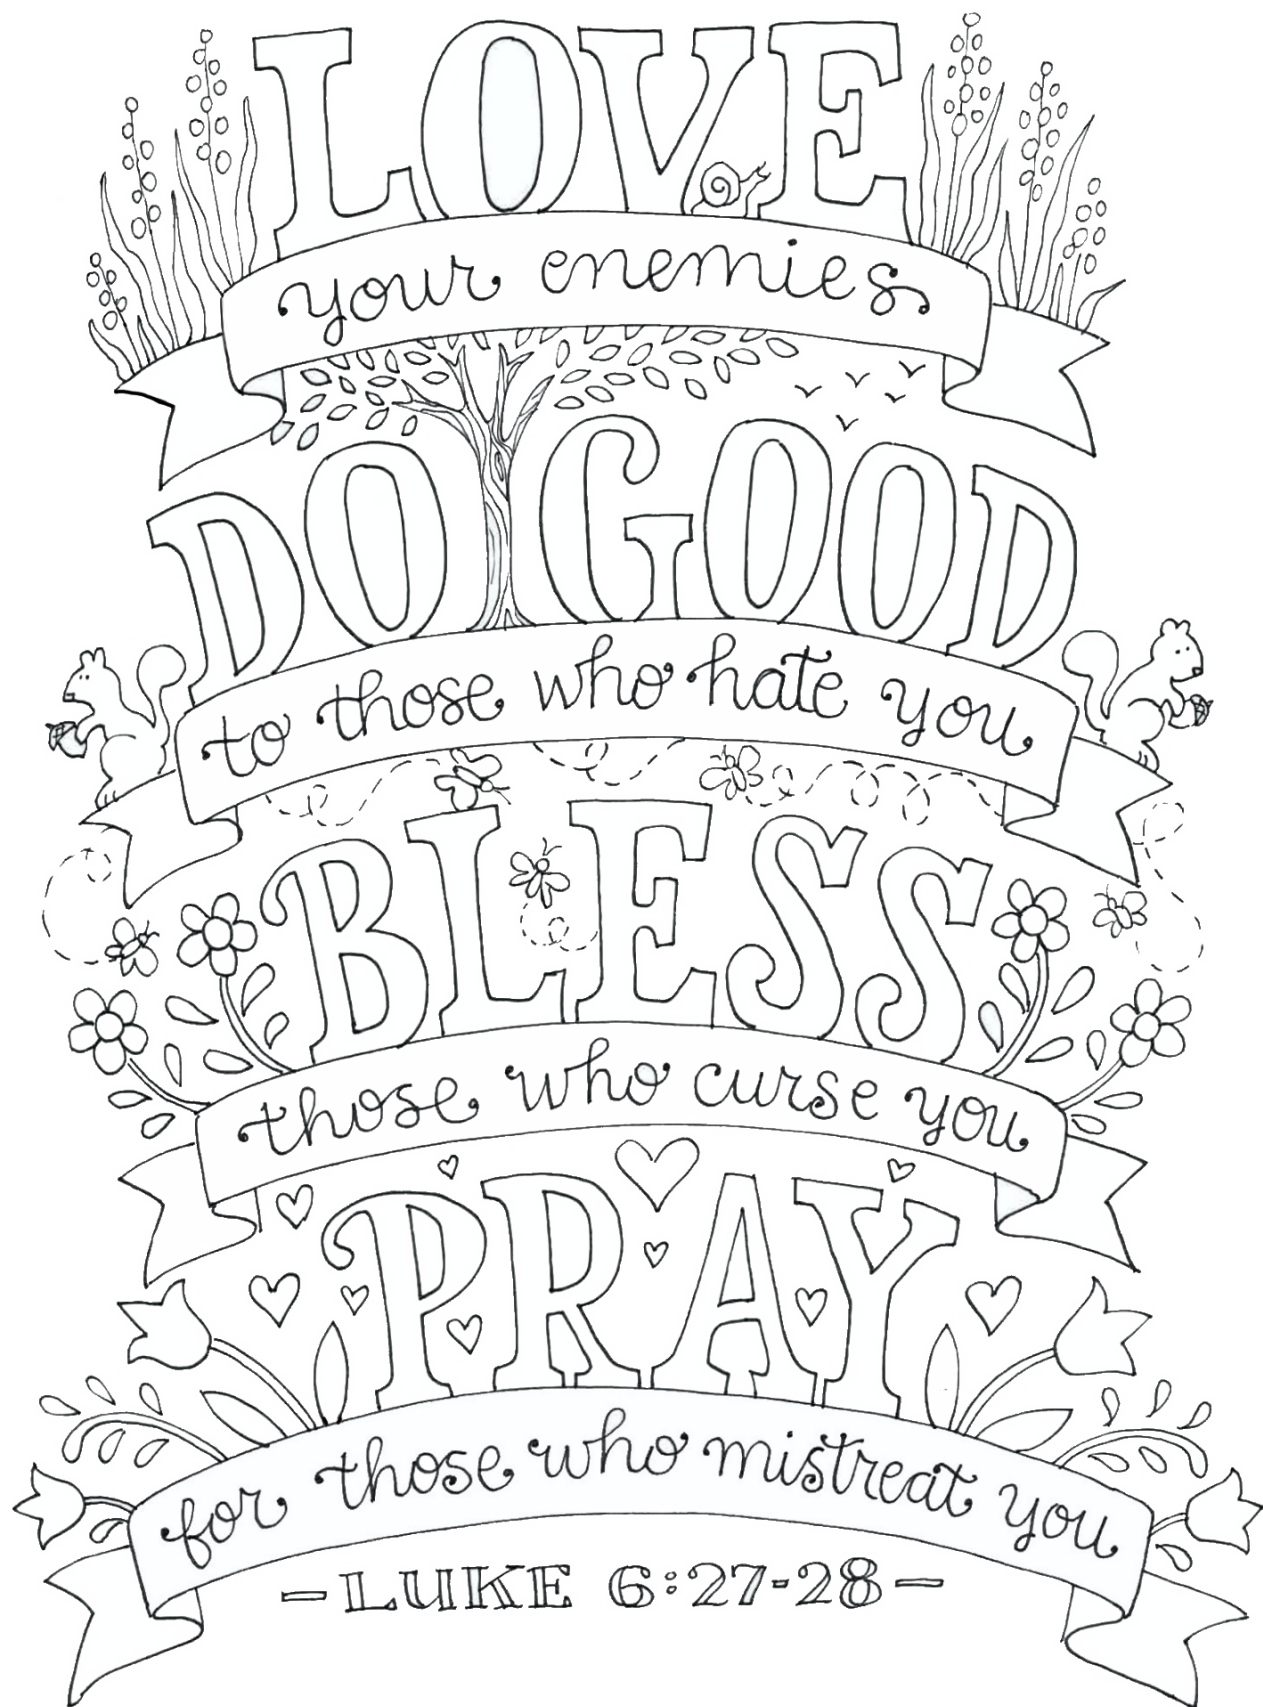 LOVE
your enemies
DO GOOD
to those who hate you
BLESS
those who curse you
PRAY
for those who mistreat you
- LUKE 6:27-28 -